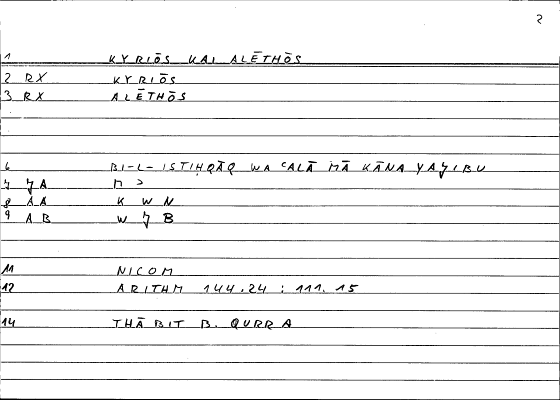 2
1 KYRIŌS KAI ALĒTHŌS
2 RX KYRIŌS
3 RX ALĒTHŌS
6 BI-L-ISTIḤQĀQ WA ʿALĀ MĀ KĀNA YAJIBU
7 JA M ʾ
8 AA K W N
9 AB W J B
11 NICOM
12 ARITHM 144.24 : 111.15
14 THĀBIT B. QURRA